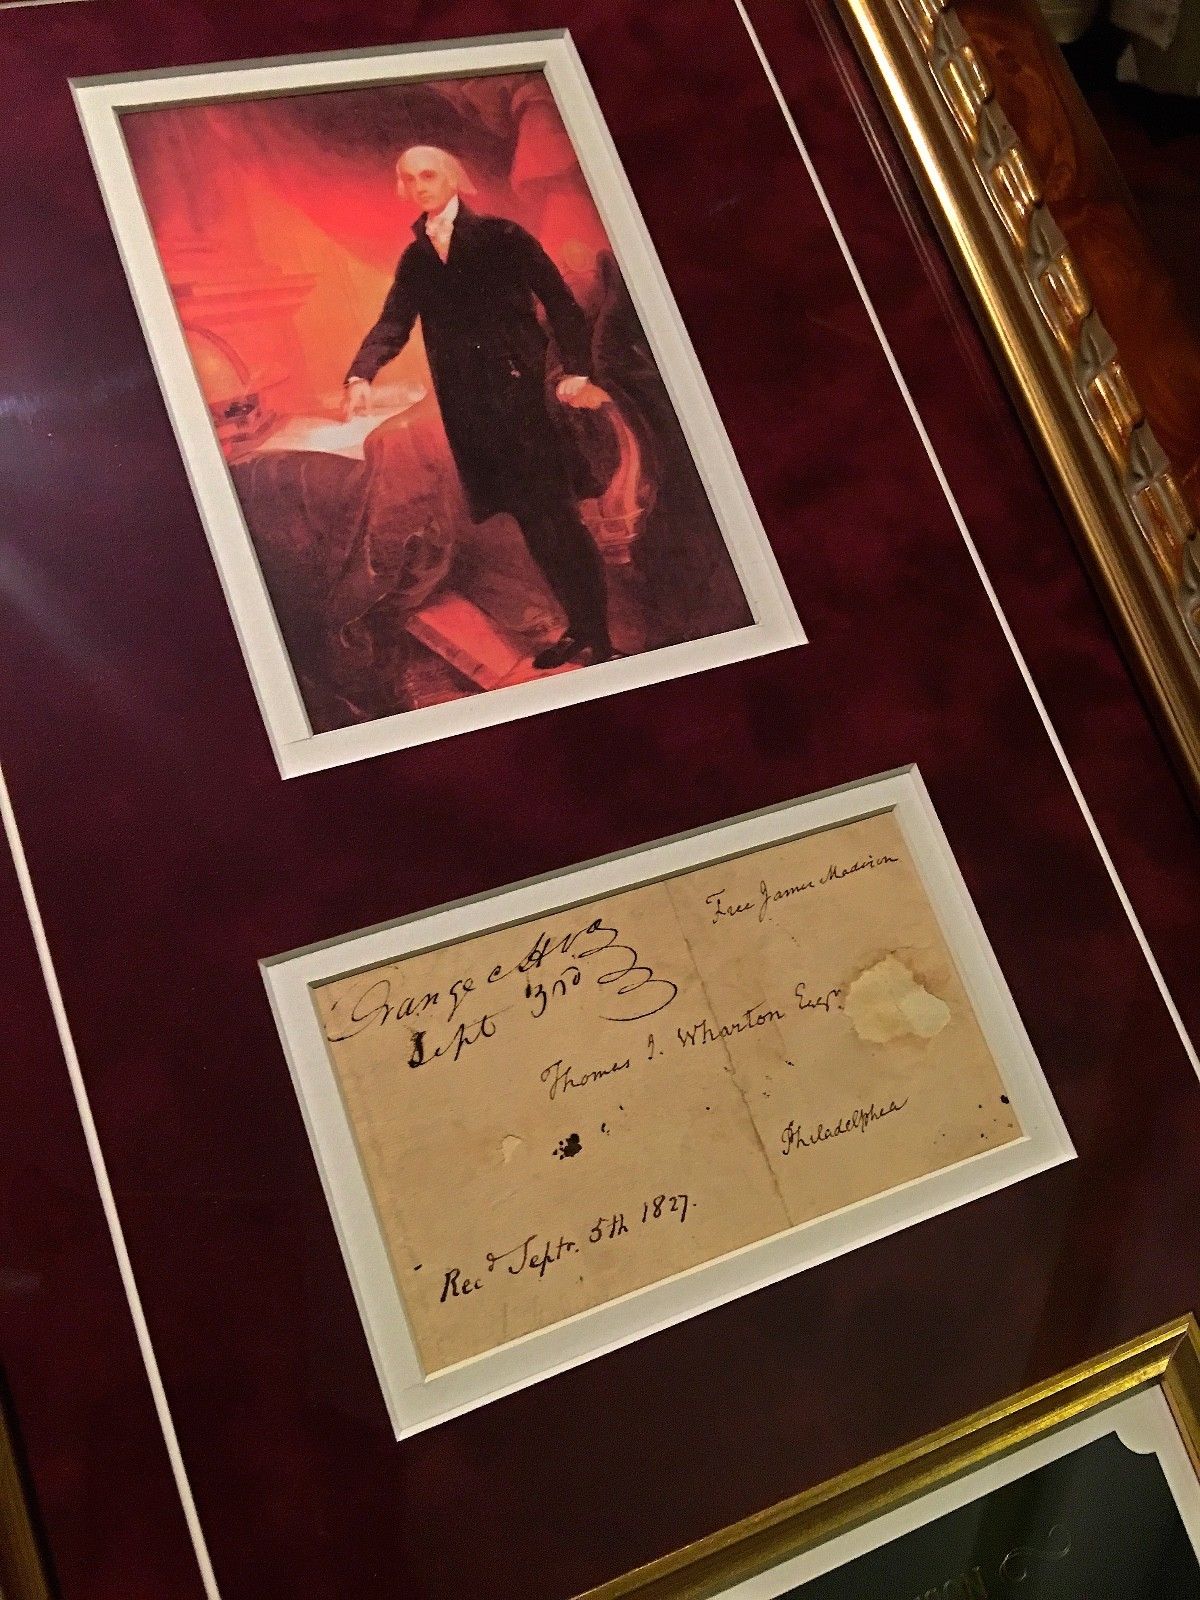 Free James Madison
Orange CHVa
Sept 3rd
Thomas I. Wharton Esqr.
Philadelphia
Recd Septr. 5th 1827.